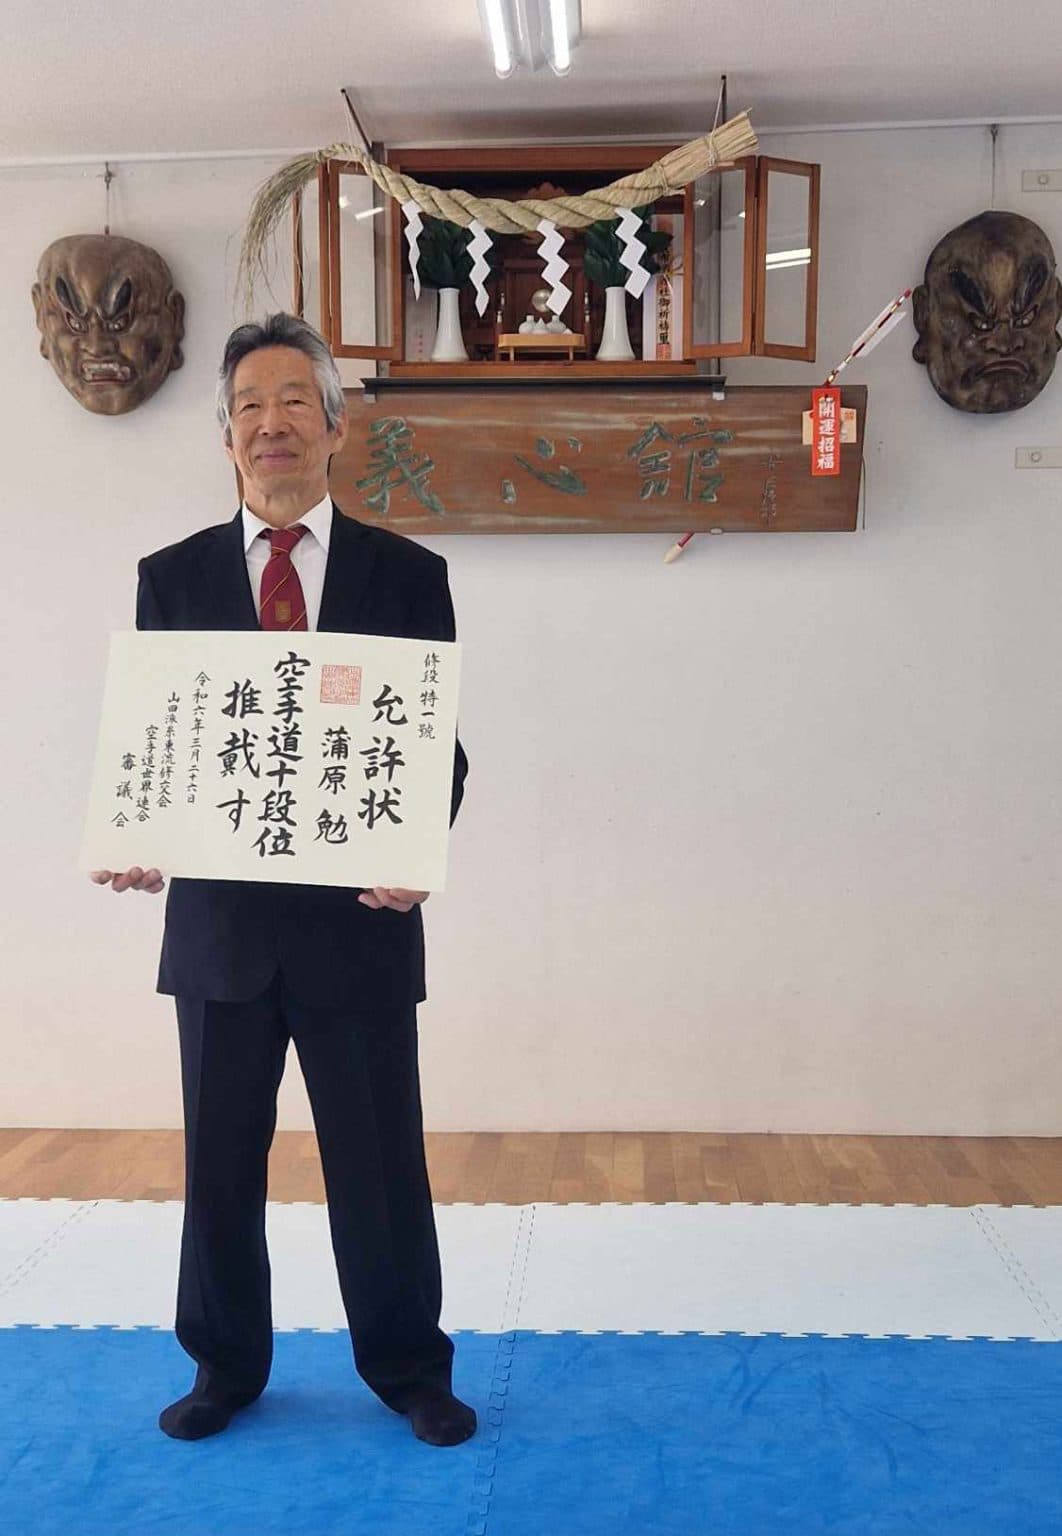 義心館
開運招福
修段 特一號
允許状
蒲原 勉
空手道十段位
推戴す
令和六年三月二十六日
山田派糸東流修交会
空手道世界連合
審議会